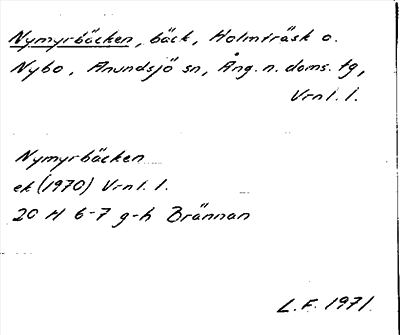 Nymyrbäcken, bäck, Holmträsk o.
Nybo, Anundsjö sn, Ång. n. doms. tg,
Vrnl. l.
Nymyrbäcken
ek (1970) Vrnl. l.
20 H 6-7 g-h Brännan
L.F. 1971.